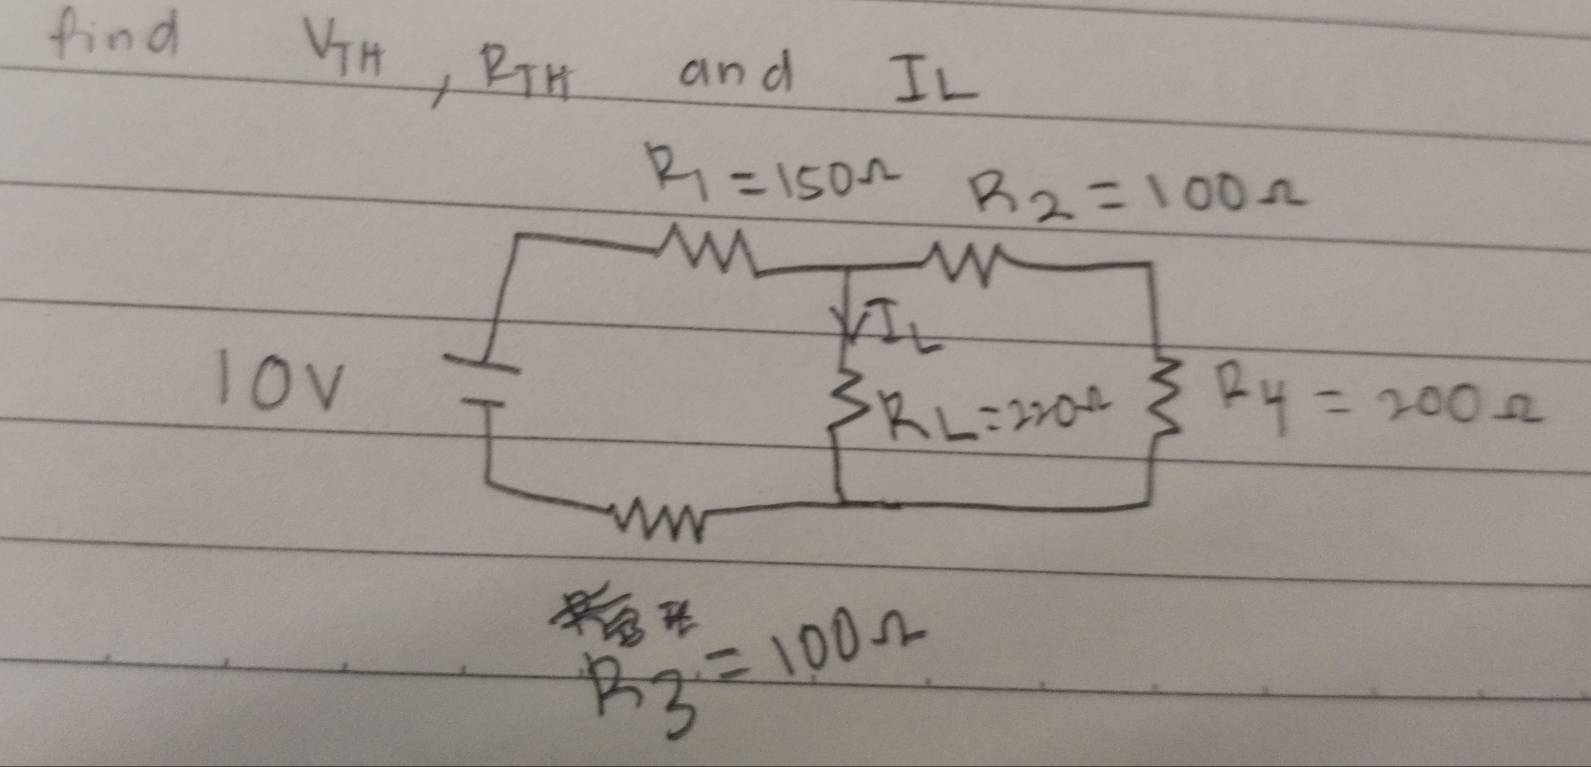 find VTH, RTH and IL
R1 = 150Ω R2 = 100Ω
IL
10V
RL = 220Ω
R4 = 200Ω
R3 = 100Ω